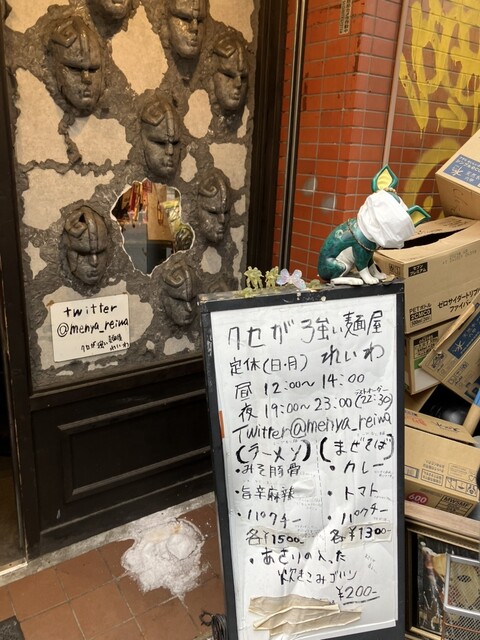 twitter
@menya_reiwa
クセが強い麺屋
れいわ
クセが強い麺屋
定休(日・月) れいわ
昼 12:00〜14:00
ラストオーダー
夜 19:00〜23:00(22:30)
Twitter@menya_reiwa
(ラーメン) (まぜそば)
・みそ豚骨 ・カレー
・旨辛麻辣 ・トマト
・パクチー ・パクチー
各¥1500- 各¥1300-
・あさりの入った
炊きこみゴハン
¥200-
PETボトル
ゼロサイダートリプ
ファイバー
600